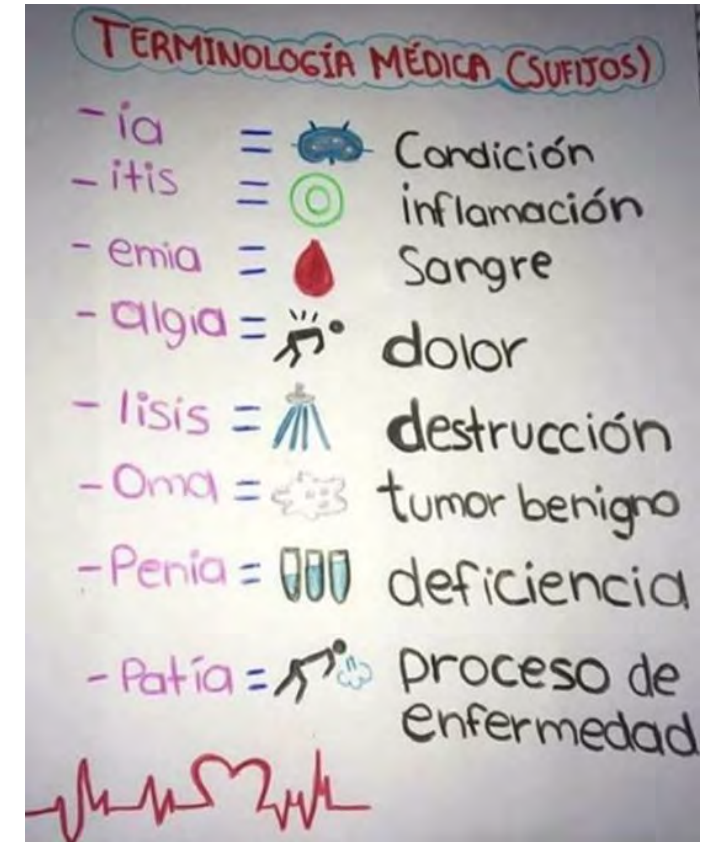 TERMINOLOGÍA MÉDICA (SUFIJOS)
- ía = Condición
- itis = inflamación
- emia = Sangre
- algia = dolor
- lisis = destrucción
- Oma = tumor benigno
- Penia = deficiencia
- Patía = proceso de
enfermedad